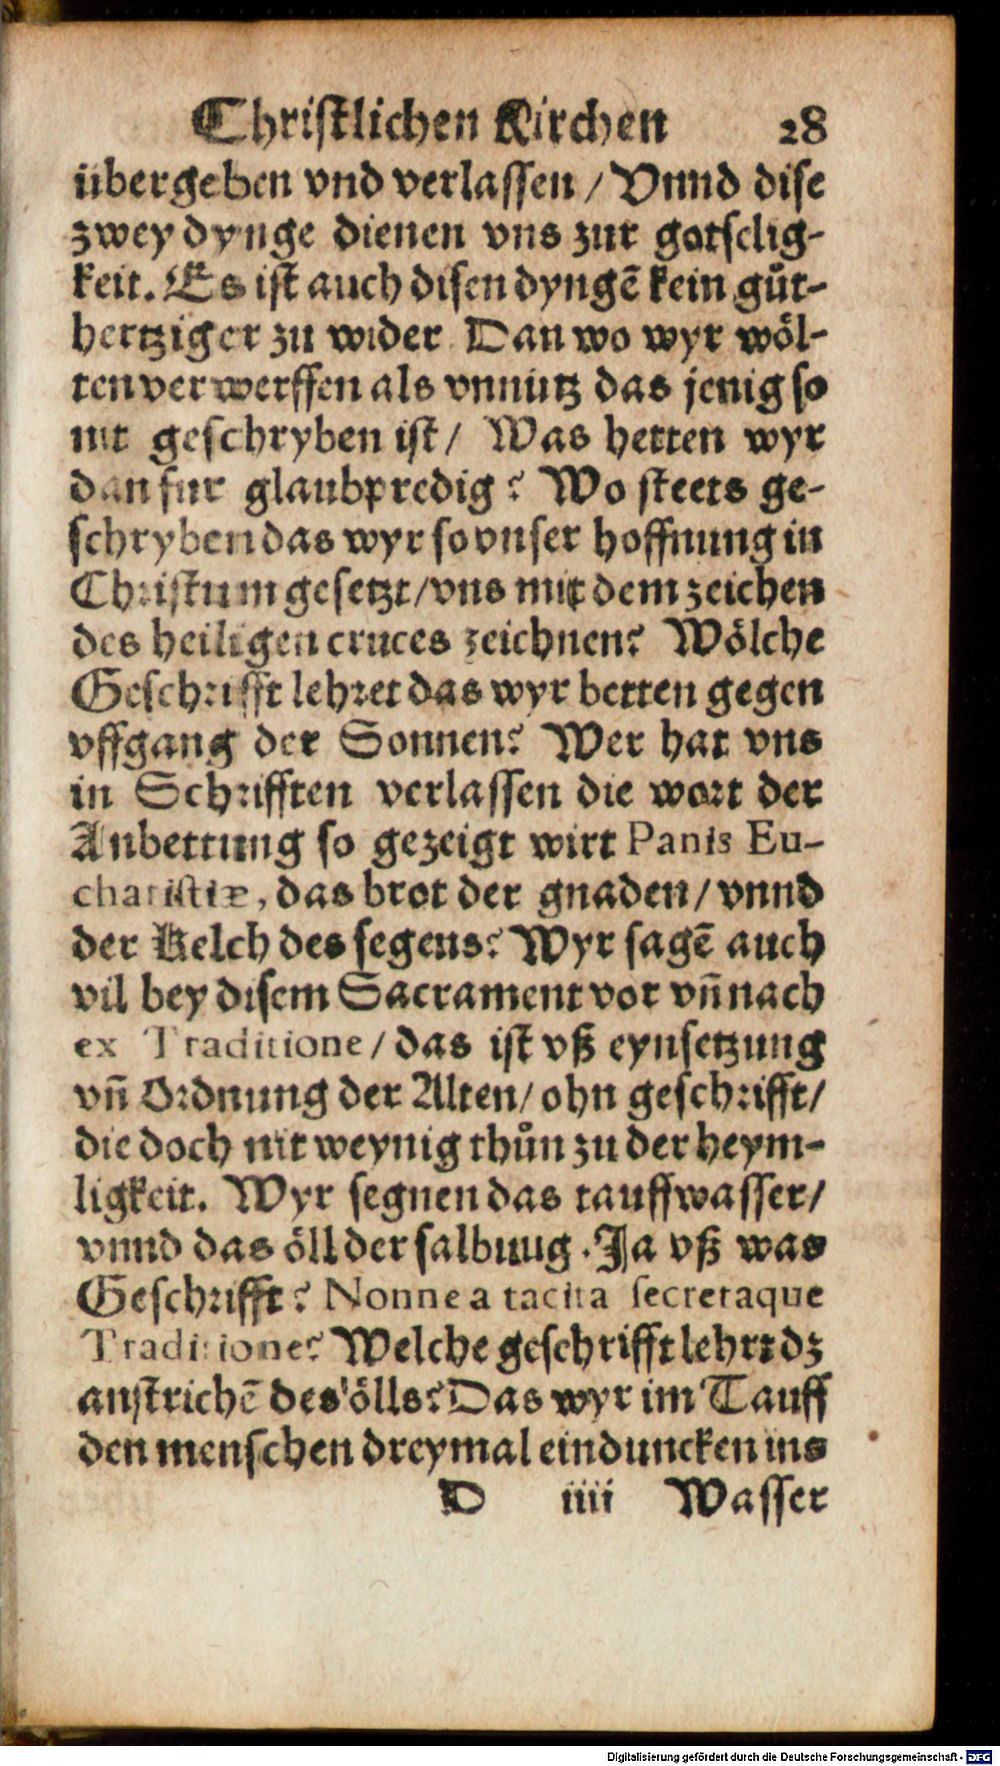 Christlichen Kirchen 28
übergeben vnd verlassen / Vnnd dise
zwey dynge dienen vns zur gotselig-
keit. Es ist auch disen dyngē kein gůt-
hertziger zu wider Dan wo wyr wöl-
ten verwerffen als vnnütz das jenig so
nit geschryben ist / Was hetten wyr
dan fur glaubpredig? Wo steets ge-
schryben das wyr so vnser hoffnung in
Christum gesetzt / vns mit dem zeichen
des heiligen cruces zeichnen? Wölche
Geschrifft lehret das wyr betten gegen
vffgang der Sonnen? Wer hat vns
in Schrifften verlassen die wort der
Anbettung so gezeigt wirt Panis Eu-
charistiæ, das brot der gnaden / vnnd
der Kelch des segens? Wyr sagē auch
vil bey disem Sacrament vor vn̄ nach
ex Traditione / das ist vß eynsetzung
vn̄ Ordnung der Alten / ohn geschrifft /
die doch nit weynig thůn zu der heym-
ligkeit. Wyr segnen das tauffwasser /
vnnd das öll der salbuug. Ja vß was
Geschrifft? Nonne a tacita secretaque
Traditione? Welche geschrifft lehrt dz
anstrichē des ölls? Das wyr im Tauff
den menschen dreymal einduncken ins
D iiii Wasser
Digitalisierung gefördert durch die Deutsche Forschungsgemeinschaft - DFG